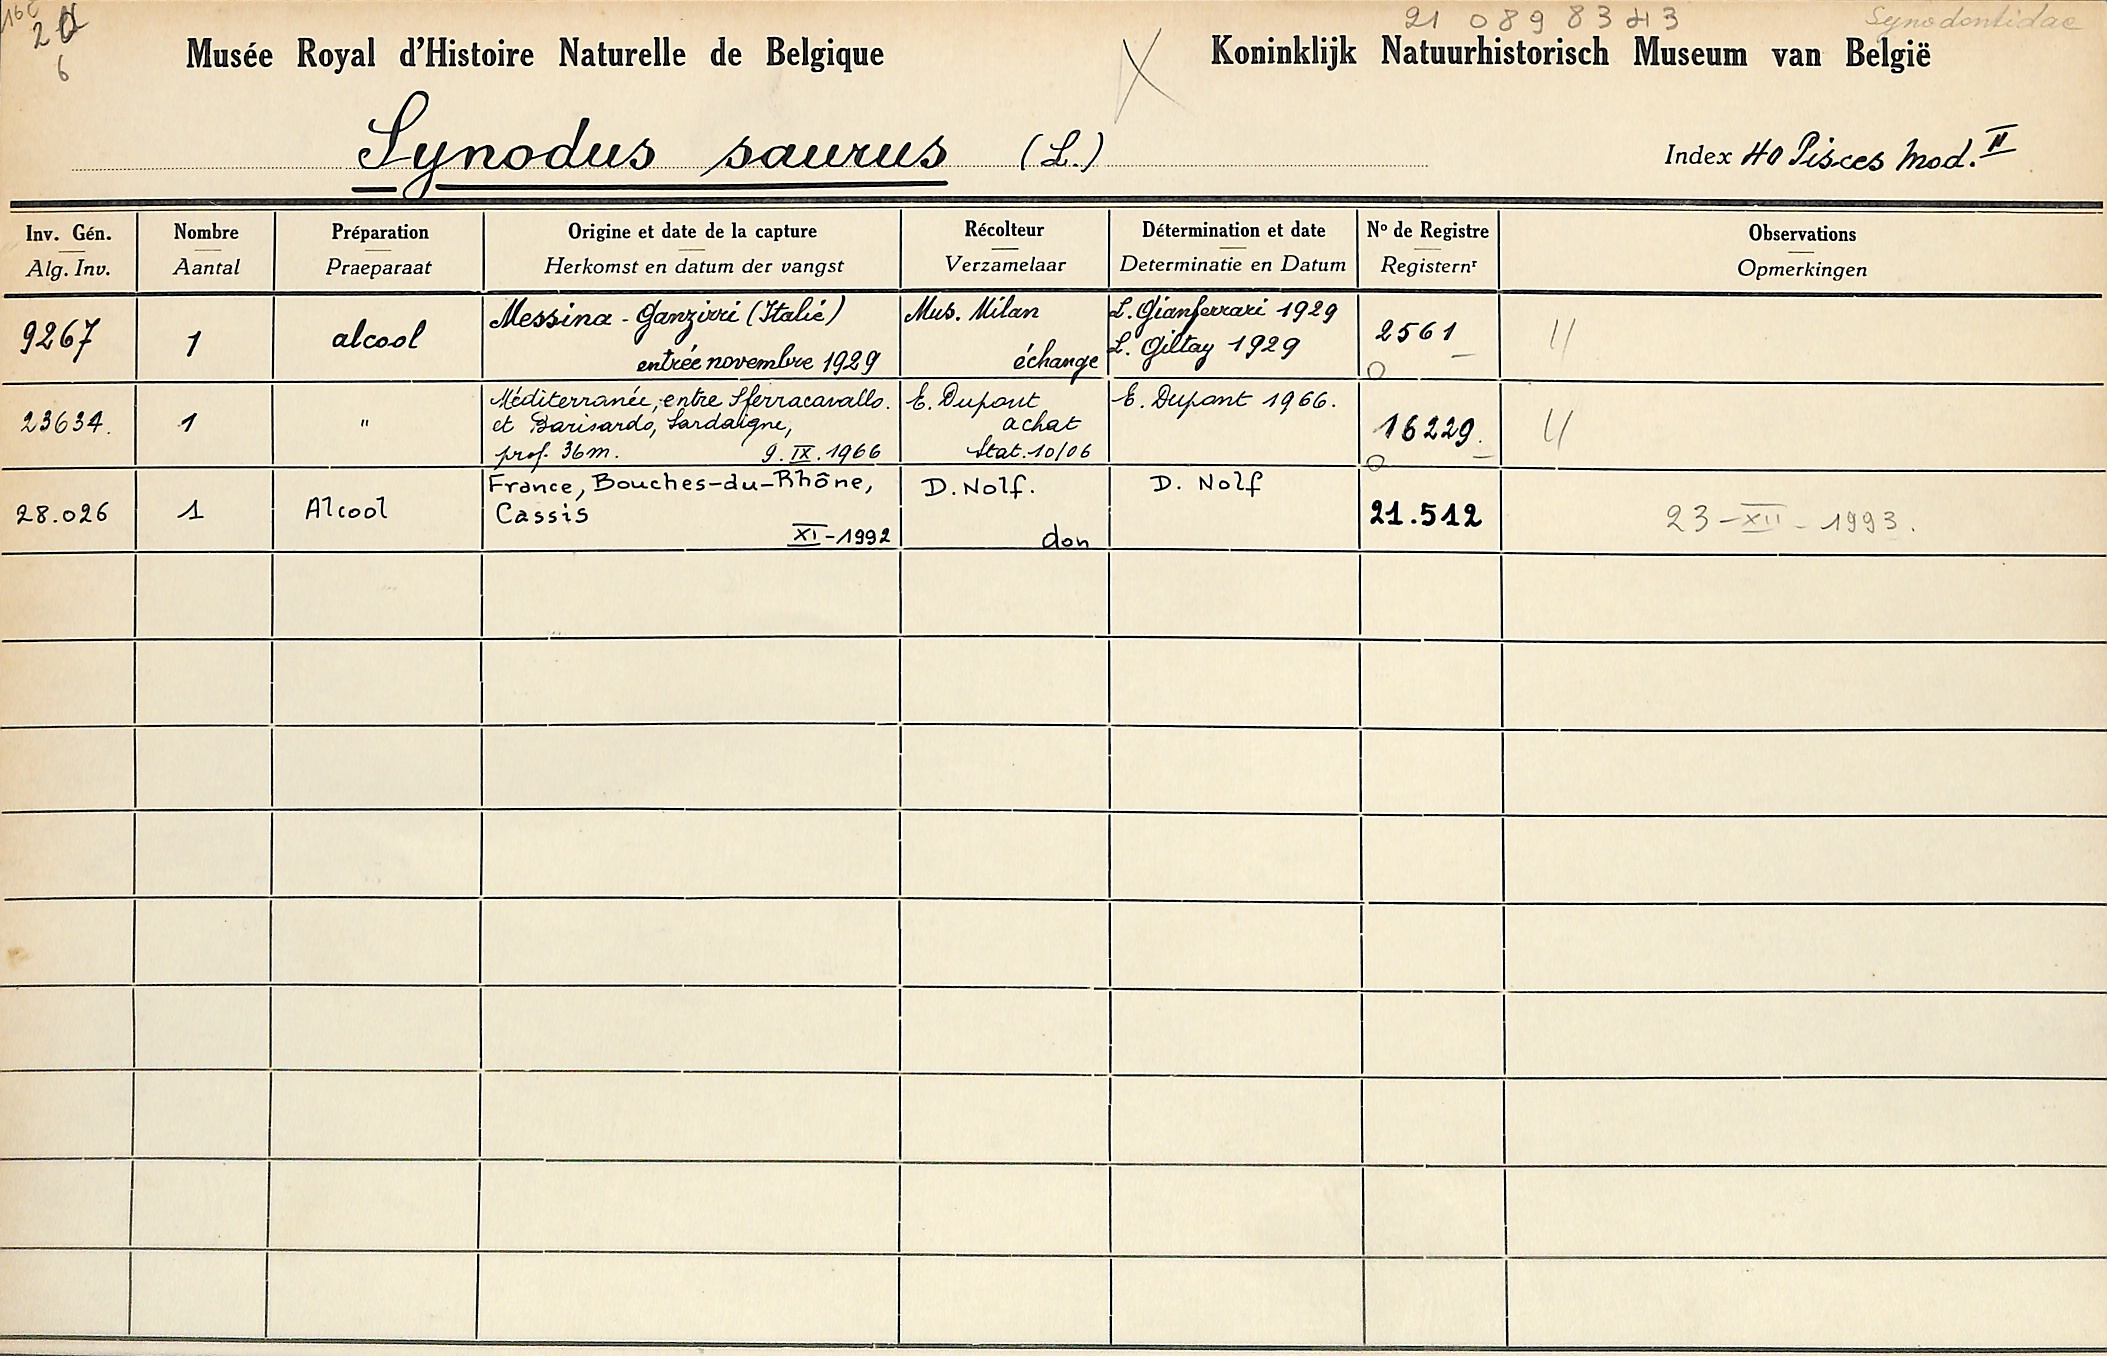 2
6
21 089 83 43 Synodontidae
Musée Royal d'Histoire Naturelle de Belgique X Koninklijk Natuurhistorisch Museum van België
Synodus saurus (L.) Index 40 Pisces Mod. II
Inv. Gén. Nombre Préparation Origine et date de la capture Récolteur Détermination et date No de Registre Observations
Alg. Inv. Aantal Praeparaat Herkomst en datum der vangst Verzamelaar Determinatie en Datum Registernr Opmerkingen
9267 1 alcool Messina - Ganzirri (Italie) Mus. Milan L. Gianferrari 1929 2561 //
entrée novembre 1929 échange L. Giltay 1929
23634. 1 " Méditerranée, entre Sferracavallo. E. Dupont E. Dupont 1966. 16229. //
et Barisardo, Sardaigne, achat
prof. 36m. 9.IX.1966 Stat. 10/06
28.026 1 Alcool France, Bouches-du-Rhône, D. Nolf. D. Nolf 21.512 23-XII-1993.
Cassis
XI-1992 don